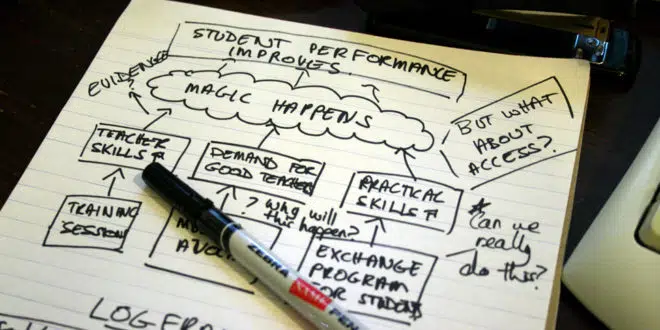 STUDENT PERFORMANCE
IMPROVES
EVIDENCE
?
MAGIC HAPPENS
BUT WHAT
ABOUT
ACCESS?
TEACHER
SKILLS ↑
DEMAND FOR
GOOD TEACHERS
PRACTICAL
SKILLS ↑
TRAINING
SESSIONS
? Why will
this happen?
EXCHANGE
PROGRAM
FOR STUDENTS
* Can we
really
do this?
ZEBRA
PEN